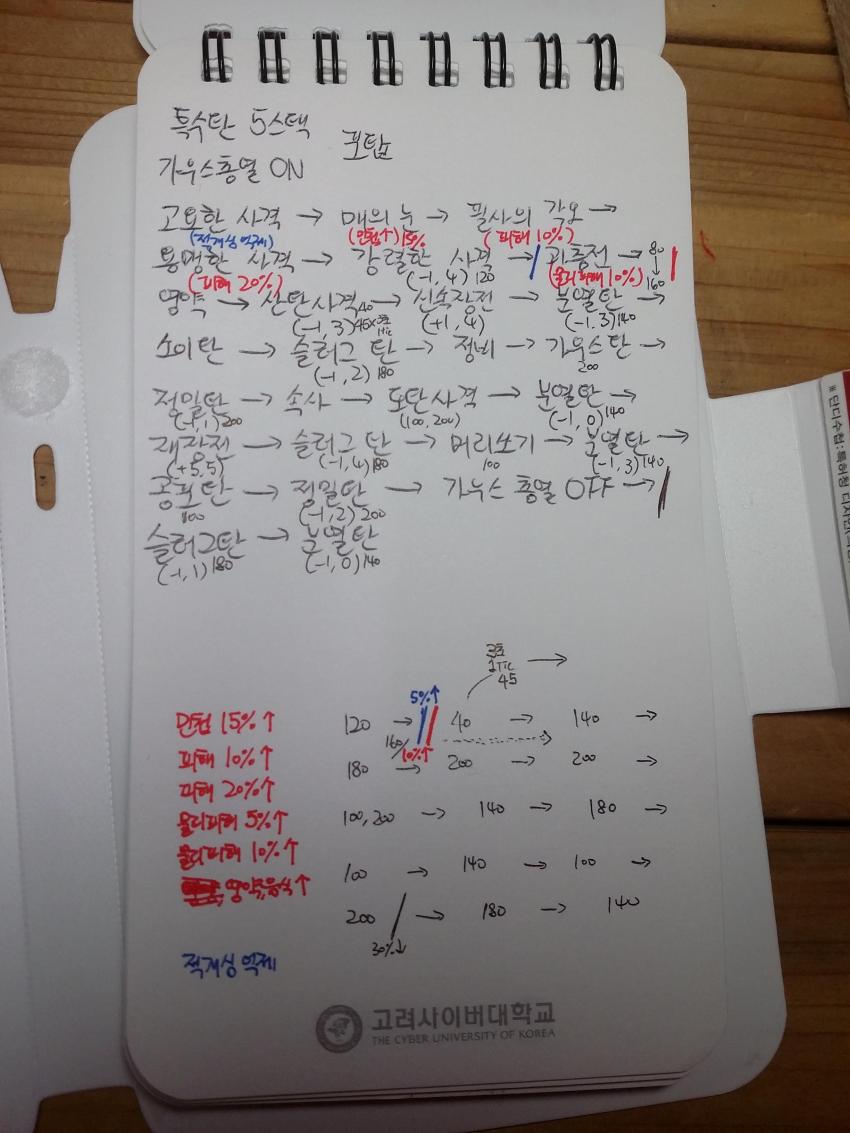 특수탄 5스택
포탑
가우스총열 ON
고요한 사격 → 매의 눈 → 필사의 각오 →
(적개심 억제) (민첩↑)15% (피해 10%)
용맹한 사격 → 강렬한 사격 → 관통전 → 80
(피해 20%) (-1, 4) 120 (물리피해 10%) 160
영약 → 산탄사격 40 → 신속장전 → 분열탄 →
(-1, 3) 45x3초 1tic (+1, 4) (-1, 3) 140
소이탄 → 슬러그 탄 → 정비 → 가우스 탄 →
(-1, 2) 180 200
정밀탄 → 속사 → 도탄사격 → 분열탄 →
(-1, 1) 200 (100, 200) (-1, 0) 140
재장전 → 슬러그 탄 → 머리쏘기 → 분열탄 →
(+5, 5) (-1, 4) 180 100 (-1, 3) 140
공포탄 → 정밀탄 → 가우스 총열 OFF →
100 (-1, 2) 200
슬러그탄 → 분열탄
(-1, 1) 180 (-1, 0) 140
3초
1tic
45 →
5%↑
민첩 15%↑ 120 → 40 → 140 →
160 10%↑
피해 10%↑ 180 → 200 → 200 →
피해 20%↑
물리피해 5%↑ 100, 200 → 140 → 180 →
물리피해 10%↑ 100 → 140 → 100 →
영약,음식↑
200 → 180 → 140
30%↓
적개심 억제
고려사이버대학교
THE CYBER UNIVERSITY OF KOREA
※ 단디수첩:특허청 디자인